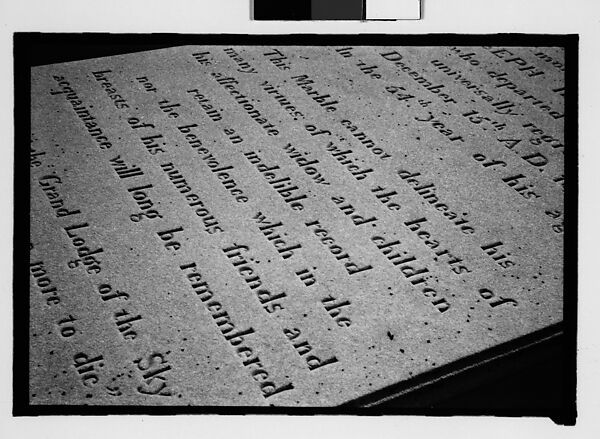 EEPH
who departed
universally regr
December 15th A.D.
In the 64th year of his ag
This Marble cannot delineate his
many virtues of which the hearts of
his affectionate widow and children
retain an indelible record
nor the benevolence which in the
breasts of his numerous friends and
acquaintance will long be remembered
the Grand Lodge of the Sky
more to die.,,